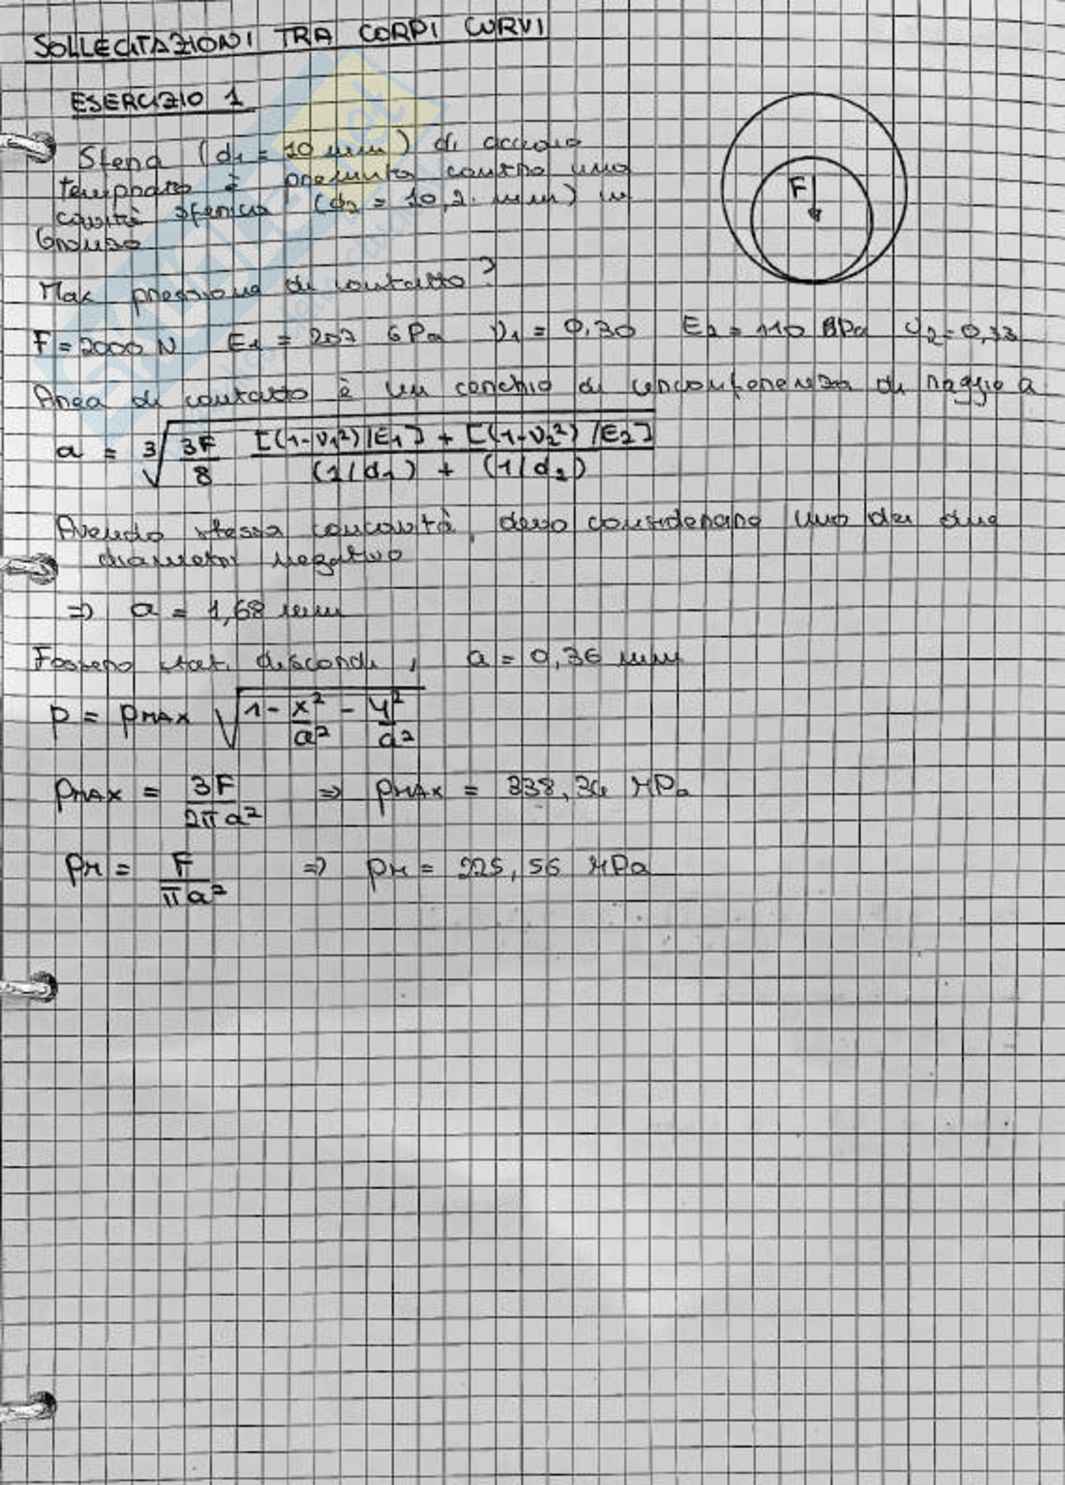 SOLLECITAZIONI TRA CORPI CURVI
ESERCIZIO 1
Sfera (d1 = 10 mm) di acciaio
temprato è premuta contro una
cavità sferica (d2 = 10,2 mm) in
bronzo
Max pressione di contatto?
F
F = 2000 N E1 = 207 GPa ν1 = 0,30 E2 = 110 GPa ν2 = 0,33
Area di contatto è un cerchio di circonferenza di raggio a
a = ∛(3F/8 · ([(1-ν1²)/E1] + [(1-ν2²)/E2]) / ((1/d1) + (1/d2)))
Avendo stessa concavità, devo considerare uno dei due
diametri negativo
⇒ a = 1,68 mm
Fossero stati discordi, a = 0,36 mm
p = pMAX √(1 - x²/a² - y²/a²)
pMAX = 3F/2πa² ⇒ pMAX = 338,34 MPa
pM = F/πa² ⇒ pM = 225,56 MPa